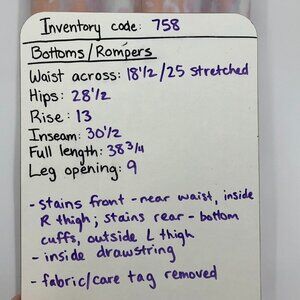 Inventory code: 758
Bottoms/Rompers
Waist across: 18 1/2 / 25 stretched
Hips: 28 1/2
Rise: 13
Inseam: 30 1/2
Full length: 38 3/4
Leg opening: 9
- stains front - near waist, inside
R thigh; stains rear - bottom
cuffs, outside L thigh
- inside drawstring
- fabric/care tag removed